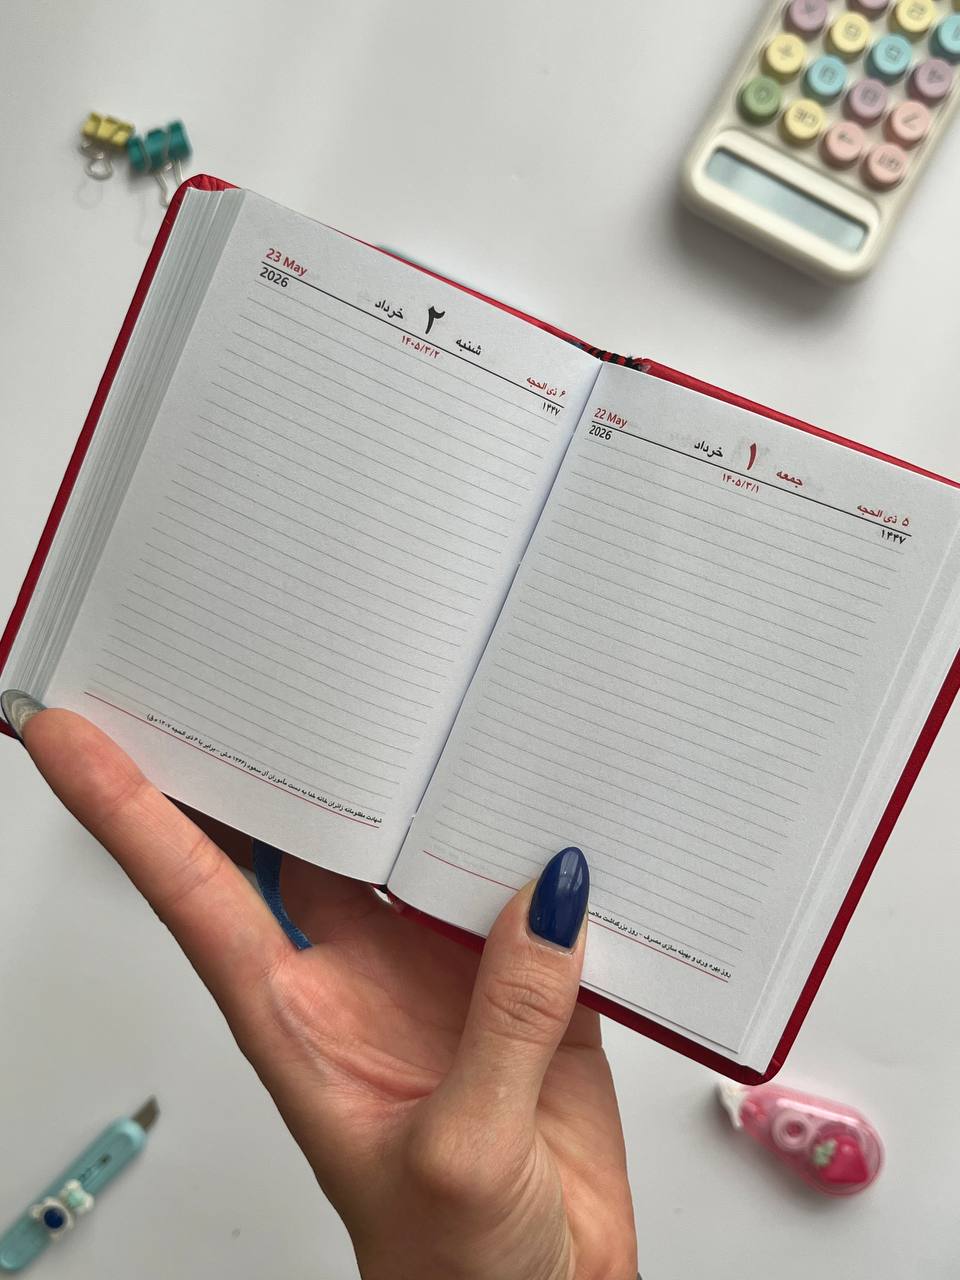 جمعه ۱ خرداد
۱۴۰۵/۳/۱
22 May
2026
۵ ذی الحجه
۱۴۴۷
روز بهره وری و بهینه سازی مصرف - روز بزرگداشت ملاصد
شنبه ۲ خرداد
۱۴۰۵/۳/۲
23 May
2026
۶ ذی الحجه
۱۴۴۷
شهادت مظلومانه زائران خانه خدا به دست مأموران آل سعود (۱۳۶۶ ه.ش - برابر با ۶ ذی الحجه ۱۴۰۷ ه.ق)
CE